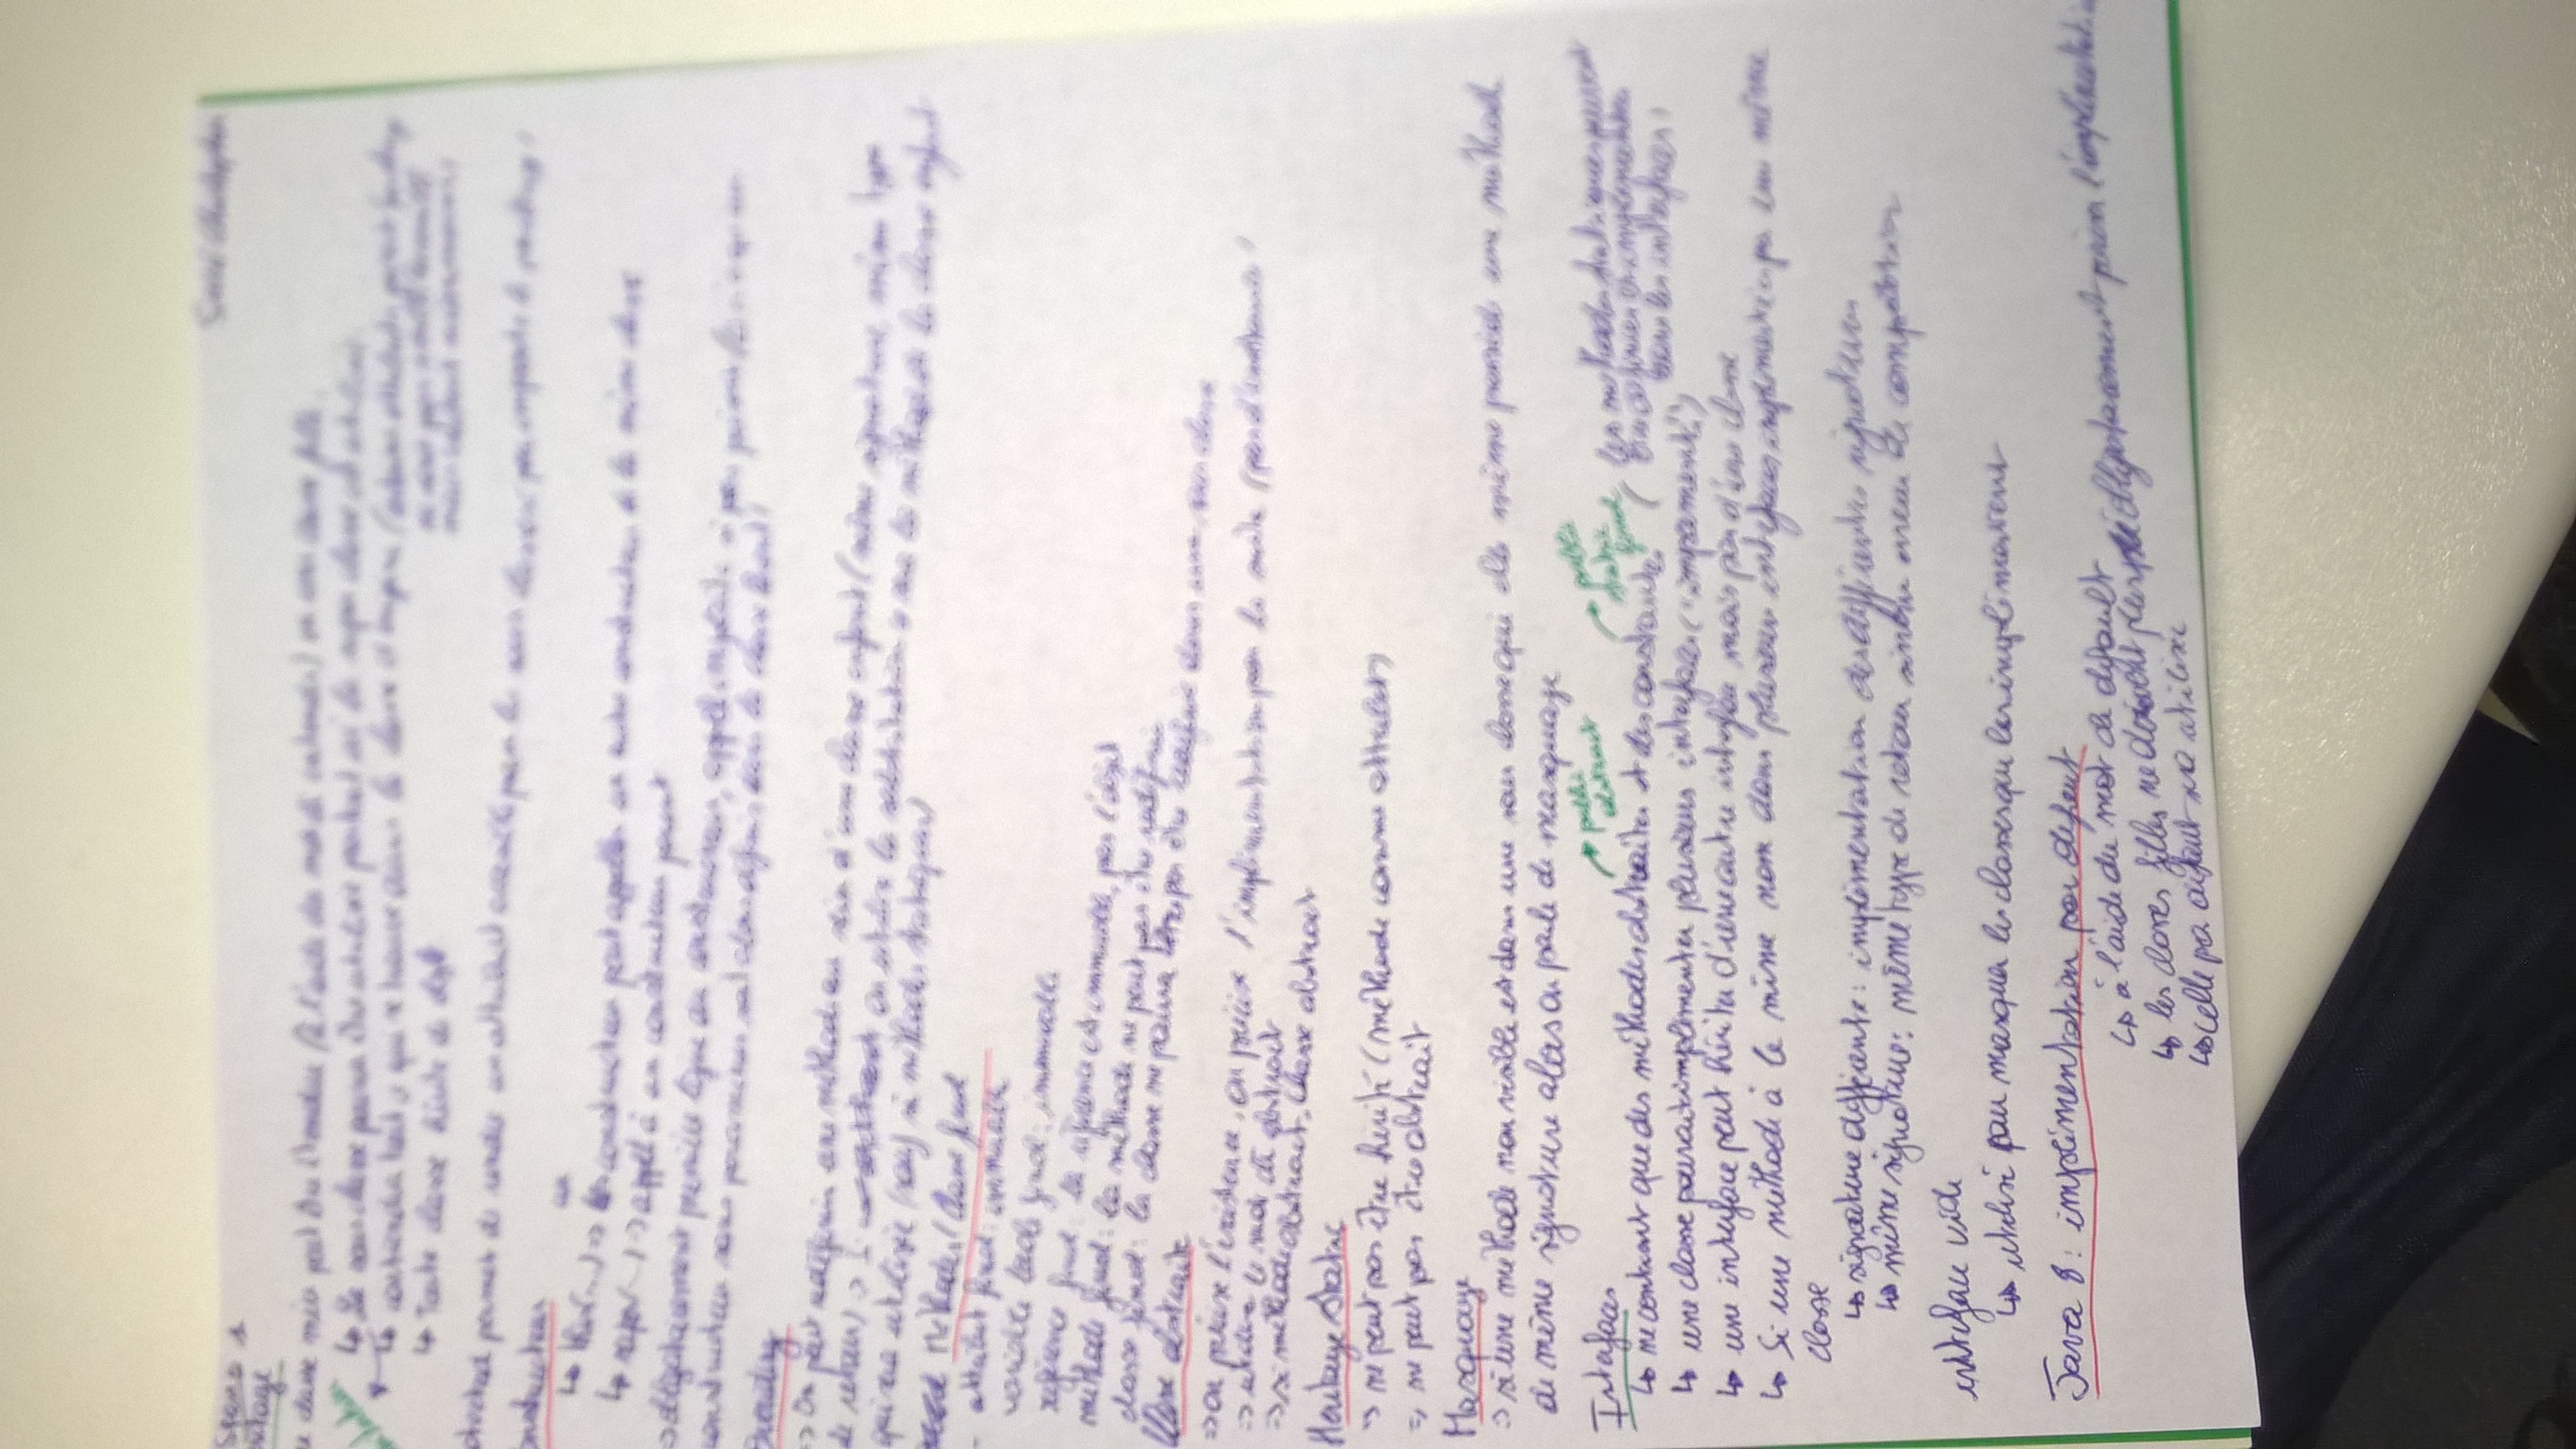 Séance 1
...ritage
classe mère peut être étendue (à l'aide du mot clé extends) en une classe fille.
↳ La sous classe pourra être utilisée partout où la super classe est utilisée
↳ contiendra tout ce qui se trouve dans la classe d'origine
↳ Toute classe hérite de objet
permet de rendre un attribut accessible par les sous classes peu importe le package !
Constructeur
un
↳ this(...) => constructeur peut appeller un autre constructeur de la même classe
↳ super(...) => appel à un constructeur parent
=> obligatoirement première ligne du constructeur, appel implicite si pas
constructeur sans paramètres dans la classe
=> On peut redéfinir une méthode au sein d'une classe enfant (même signature, même type
de retour) => on utilise la substitution la méthode de la classe enfant
qui sera utilisée (sauf si méthodes statiques)
Méthodes / Classe final
- attribut final : immuable
variable locale final : immuable
référence final : la référence est immuable, pas l'objet
méthode final : la méthode ne peut pas être redéfinie
classe final : la classe ne pourra pas être redéfinie dans une sous classe
Classe abstraite
=> on précise l'existence, on précise l'implémentation par la suite (pas d'instance !
=> utilise le mot clé abstract
=> si méthode abstract, classe abstract
Héritage static
=> ne peut pas être hérité (méthode comme attribut)
=> ne peut pas être abstrait
Masquage
=> si une méthode non visible est dans une sous classe qui elle même possède une méthode
de même signature alors on parle de masquage
public
abstract
public
static
final
Interfaces
↳ ne contient que des méthodes abstraites et des constantes (les méthodes statiques peuvent
être définies et implémentées
dans les interfaces !
↳ une classe pourrait implémenter plusieurs interfaces ("implements")
↳ une interface peut hériter d'une autre interface mais pas d'une classe
↳ Si une méthode à le même nom dans plusieurs interfaces implémentées par une même
classe
↳ signature différente : implémentation des différentes signatures
↳ même signature : même type de retour sinon erreur de compilation
interface vide
↳ utilisé pour masquer les classes qui les implémentent
Java 8 : implémentation par defaut
↳ à l'aide du mot clé default
↳ les classes filles ne doivent plus obligatoirement préciser l'implémentation
↳ celle par défaut sera utilisée